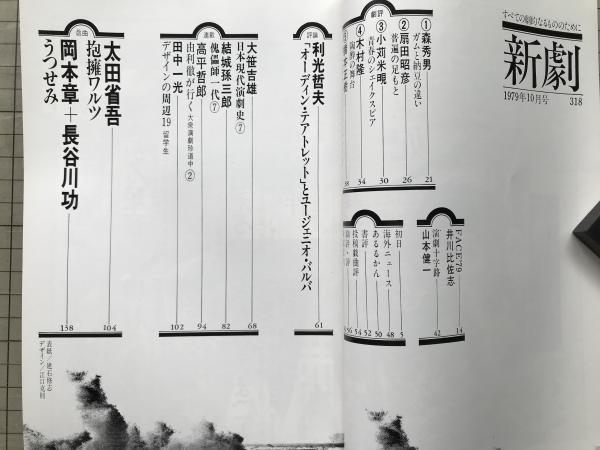 すべての劇的なるもののために
新劇
1979年10月号
318
劇評
①森秀男
ガムと納豆の違い
21
②扇田昭彦
普遍の足もと
26
③小苅米晛
青春のシェイクスピア
30
④木村隆
34
38
FACE'79
井川比佐志
14
演劇十字路
山本健一
42
初日
5
海外ニュース
48
あるるかん
50
書評
52
投稿戯曲評
54
56
評論
利光哲夫
「オーディン・テアトレット」とユージェニオ・バルバ
61
連載
大笹吉雄
日本現代演劇史⑦
68
結城孫三郎
傀儡師一代⑦
82
高平哲郎
由利徹が行く 大衆演劇珍道中②
94
田中一光
デザインの周辺19 留学生
102
戯曲
太田省吾
抱擁ワルツ
104
岡本章＋長谷川功
うつせみ
138
表紙／建石修志
デザイン／江口克則